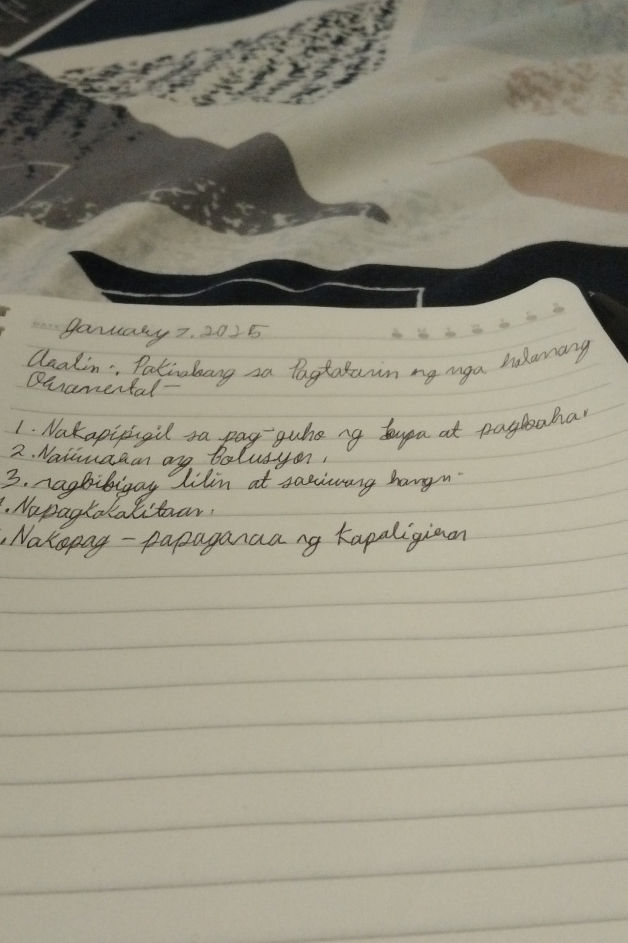 January 7, 2025
Aralin:, Pakinabang sa Pagtatanim ng mga halamang
Ornamental-
1. Nakapipigil sa pag-guho ng lupa at pagbaha.
2. Naiiwasan ang Polusyon.
3. nagbibigay lilim at sariwang hangin.
4. Napagkakakitaan.
. Nakapag-papaganda ng Kapaligiran